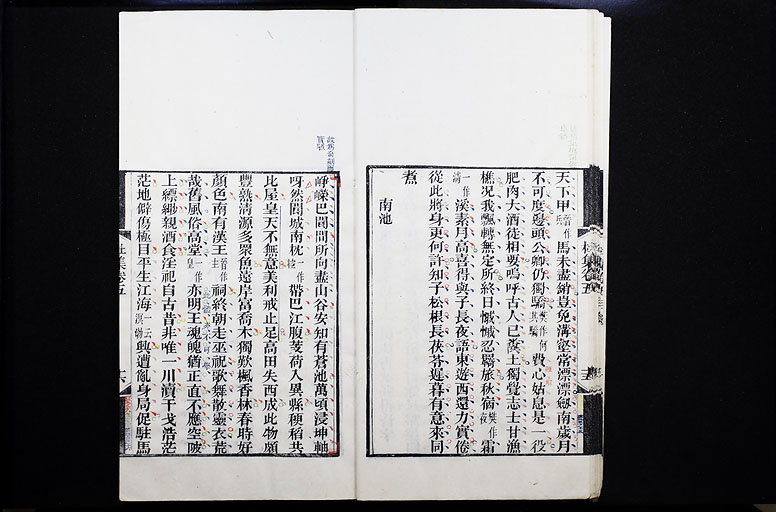 天下甲晉作兵馬未盡銷豈免溝壑常漂漂劔南歲月
不可度邊頭公卿仍獨驕費心姑息是一役
肥肉大酒徒相要嗚呼古人已糞土獨覺志士甘漁
樵況我飄轉無定所終日慽慽忍羈旅秋宿樊作夜霜
一作清溪素月高喜得與子長夜語東遊西還力實倦
從此將身更何許知子松根長茯苓遲暮有意來同
煮
南池
崢嶸巴閬間所向盡山谷安知有蒼池萬頃浸坤軸
呀然閬城南枕一作帶巴江腹芰荷入異縣稉稻共
比屋皇天不無意美利戒止足高田失西成此物頗
豐熟清源多衆魚遠岸富喬木獨歎楓香林春時好
顏色南有漢王晉作主祠終朝走巫祝歌舞散靈衣荒
哉舊風俗高堂一作皇亦明王魂魄猶正直不應空陂
上縹緲親酒食淫祀自古昔非唯一川瀆干戈浩茫
茫地僻傷極目平生江海一云溟渤興遭亂身局促駐馬
杜集卷五